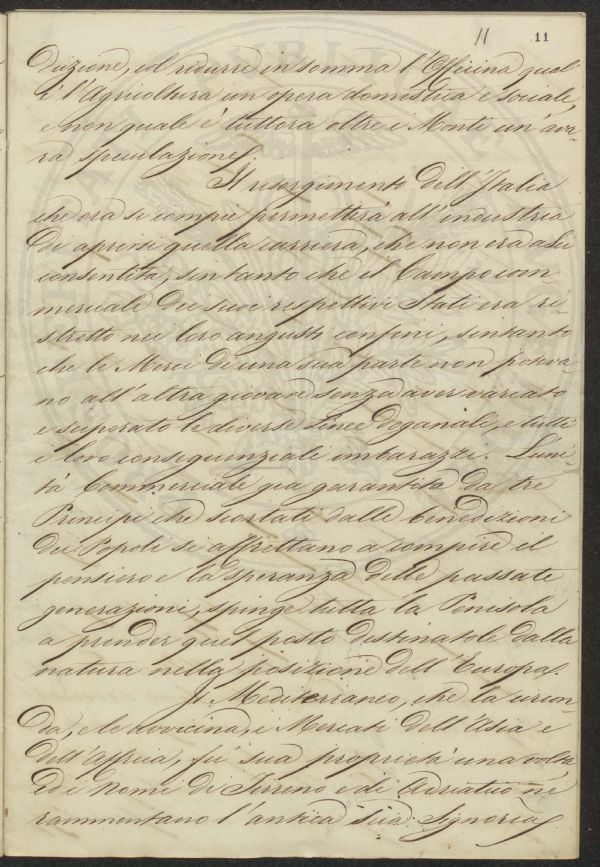 11 11
duzione, ed ridurre in somma l'Officina qual'
è l'Agricoltura un opera domestica e sociale,
e non quale è tuttora oltre i Monti un'ava-
ra speculazione.
Il risorgimento dell'Italia
che ora si compie permetterà all'industria
di aprirsi quella carriera, che non era a lei
consentita, sin tanto che il Campo com-
merciale dei suoi rispettivi Stati era ri-
stretto nei loro angusti confini, sintanto
che le Merci di una sua parte non poteva-
no all'altra giovare senza aver varcato
e superato le diverse linee doganali, e tutti
i loro conseguenziali imbarazzi. L'uni-
tà Commerciale già garantita da tre
Principi che scortati dalle benedizioni
dei Popoli si affrettano a compire il
pensiero e la speranza delle passate
generazioni, spinge tutta la Penisola
a prender quel posto destinatole dalla
natura nella posizione dell'Europa.
Il Mediterraneo, che la circon-
da, e le avvicina i Mercati dell'Asia e
dell'Affrica, fù sua proprietà una volta
ed i Nomi di Tirreno e di Adriatico ne
rammentano l'antica sua Signoria